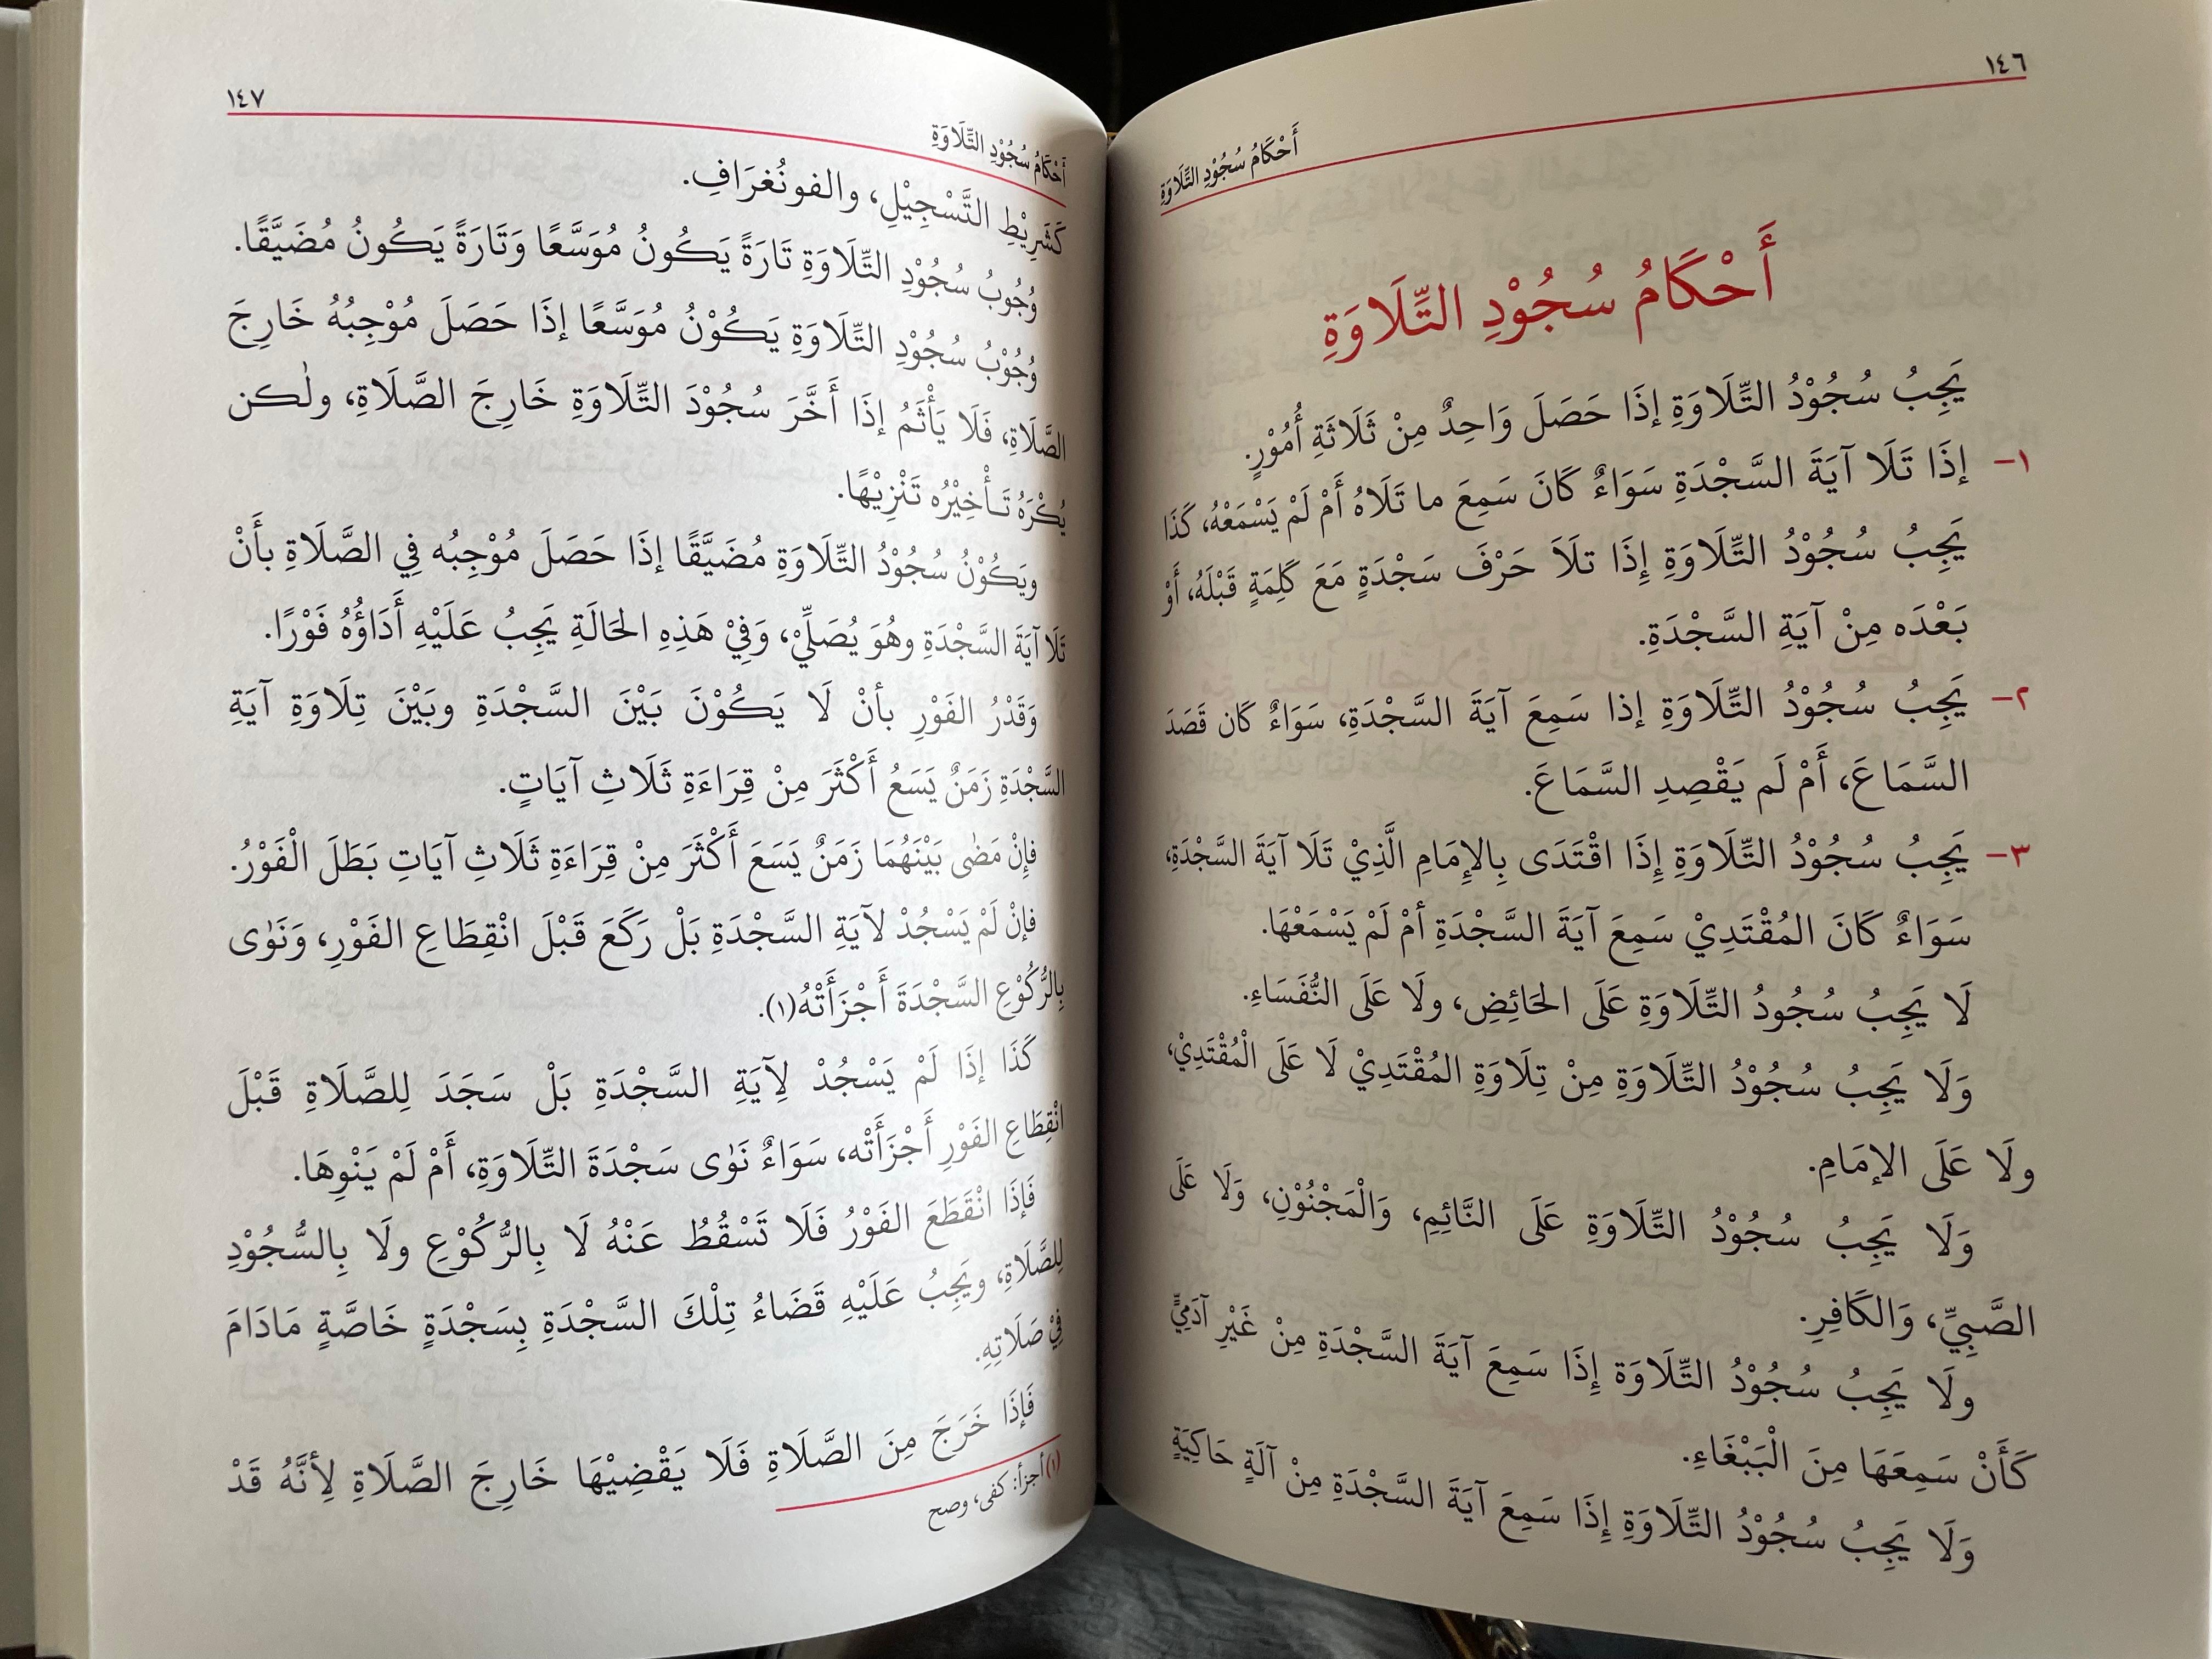 ١٤٦
أَحْكَامُ سُجُوْدِ التِّلَاوَةِ
أَحْكَامُ سُجُوْدِ التِّلَاوَةِ
يَجِبُ سُجُوْدُ التِّلَاوَةِ إِذَا حَصَلَ وَاحِدٌ مِنْ ثَلَاثَةِ أُمُوْرٍ.
١- إِذَا تَلَا آيَةَ السَّجْدَةِ سَوَاءٌ كَانَ سَمِعَ ما تَلَاهُ أَمْ لَمْ يَسْمَعْهُ، كَذَا
يَجِبُ سُجُوْدُ التِّلَاوَةِ إِذَا تلَاَ حَرْفَ سَجْدَةٍ مَعَ كَلِمَةٍ قَبْلَهُ، أَوْ
بَعْدَه مِنْ آيَةِ السَّجْدَةِ.
٢- يَجِبُ سُجُوْدُ التِّلَاوَةِ إذا سَمِعَ آيَةَ السَّجْدَةِ، سَوَاءٌ كَان قَصَدَ
السَّمَاعَ، أَمْ لَم يَقْصِدِ السَّمَاعَ.
٣- يَجِبُ سُجُوْدُ التِّلَاوَةِ إِذَا اقْتَدَى بِالإِمَامِ الَّذِيْ تَلَا آيَةَ السَّجْدَةِ،
سَوَاءٌ كَانَ المُقْتَدِيْ سَمِعَ آيَةَ السَّجْدَةِ أمْ لَمْ يَسْمَعْهَا.
لَا يَجِبُ سُجُودُ التِّلَاوَةِ عَلَى الحَائِضِ، ولَا عَلَى النُّفَسَاءِ.
وَلَا يَجِبُ سُجُوْدُ التِّلَاوَةِ مِنْ تِلَاوَةِ المُقْتَدِيْ لَا عَلَى الْمُقْتَدِيْ،
ولَا عَلَى الإمَامِ.
وَلَا يَجِبُ سُجُوْدُ التِّلَاوَةِ عَلَى النَّائِمِ، وَالْمَجْنُوْنِ، وَلَا عَلَى
الصَّبِيِّ، وَالكَافِرِ.
ولَا يَجِبُ سُجُوْدُ التِّلَاوَة إِذَا سَمِعَ آيَةَ السَّجْدَةِ مِنْ غَيْرِ آدَمِيٍّ
كَأَنْ سَمِعَهَا مِنَ الْبَبْغَاءِ.
وَلَا يَجِبُ سُجُوْدُ التِّلَاوَةِ إِذَا سَمِعَ آيَةَ السَّجْدَةِ مِنْ آلَةٍ حَاكِيَةٍ
١٤٧
أَحْكَامُ سُجُوْدِ التِّلَاوَةِ
كَشَرِيْطِ التَّسْجِيْلِ، والفونُغرَافِ.
وُجُوبُ سُجُوْدِ التِّلَاوَةِ تَارَةً يَكُونُ مُوَسَّعًا وَتَارَةً يَكُونُ مُضَيَّقًا.
وُجُوْبُ سُجُوْدِ التِّلَاوَةِ يَكُوْنُ مُوَسَّعًا إذَا حَصَلَ مُوْجِبُهُ خَارِجَ
الصَّلَاةِ، فَلَا يَأْثَمُ إذَا أَخَّرَ سُجُوْدَ التِّلَاوَةِ خَارِجَ الصَّلَاةِ، ولٰكن
يُكْرَهُ تَأْخِيْرُه تَنْزِيْهًا.
ويَكُوْنُ سُجُوْدُ التِّلَاوَةِ مُضَيَّقًا إذَا حَصَلَ مُوْجِبُه فِي الصَّلَاةِ بأَنْ
تَلَا آيَةَ السَّجْدَةِ وهُوَ يُصَلِّيْ، وَفِيْ هَذِهِ الحَالَةِ يَجِبُ عَلَيْهِ أَدَاؤُهُ فَوْرًا.
وَقَدْرُ الفَوْرِ بأنْ لَا يَكُوْنَ بَيْنَ السَّجْدَةِ وبَيْنَ تِلَاوَةِ آيَةِ
السَّجْدَةِ زَمَنٌ يَسَعُ أَكْثَرَ مِنْ قِرَاءَةِ ثَلَاثِ آيَاتٍ.
فإِنْ مَضٰى بَيْنَهُمَا زَمَنٌ يَسَعَ أَكْثَرَ مِنْ قِرَاءَةِ ثَلَاثِ آيَاتِ بَطَلَ الْفَوْرُ.
فإنْ لَمْ يَسْجُدْ لآيَةِ السَّجْدَةِ بَلْ رَكَعَ قَبْلَ انْقِطَاعِ الفَوْرِ، وَنَوٰى
بِالرُّكُوْعِ السَّجْدَةَ أَجْزَأَتْهُ(١).
كَذَا إذَا لَمْ يَسْجُدْ لِآيَةِ السَّجْدَةِ بَلْ سَجَدَ لِلصَّلَاةِ قَبْلَ
انْقِطَاعِ الفَوْرِ أَجْزَأَتْه، سَوَاءٌ نَوٰى سَجْدَةَ التِّلَاوَةِ، أَمْ لَمْ يَنْوِهَا.
فَإِذَا انْقَطَعَ الفَوْرُ فَلَا تَسْقُطُ عَنْهُ لَا بِالرُّكُوْعِ ولَا بِالسُّجُوْدِ
لِلصَّلَاةِ، ويَجِبُ عَلَيْهِ قَضَاءُ تِلْكَ السَّجْدَةِ بِسَجْدَةٍ خَاصَّةٍ مَادَامَ
فِيْ صَلَاتِهِ.
فَإذَا خَرَجَ مِنَ الصَّلَاةِ فَلَا يَقْضِيْهَا خَارِجَ الصَّلَاةِ لِأنَّهُ قَدْ
(١) أجزأ: كفى، وصح